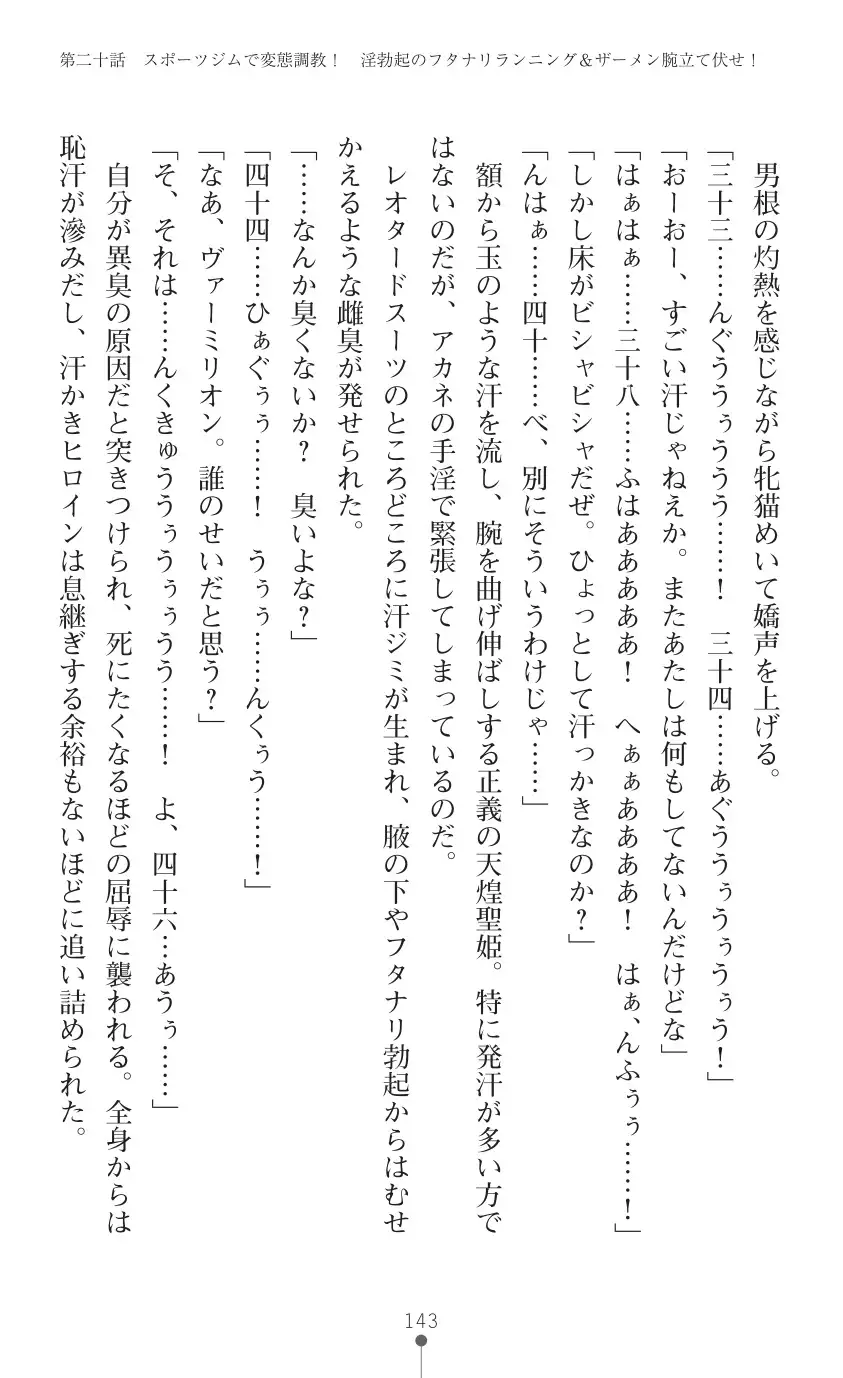 第二十話　スポーツジムで変態調教！　淫勃起のフタナリランニング＆ザーメン腕立て伏せ！
男根の灼熱を感じながら牝猫めいて嬌声を上げる。
「三十三……んぐううぅううう……！　三十四……あぐううぅうぅうぅう！」
「おーおー、すごい汗じゃねえか。またあたしは何もしてないんだけどな」
「はぁはぁ……三十八……ふはあああああ！　へぁぁああああ！　はぁ、んふぅぅ……！」
「しかし床がビシャビシャだぜ。ひょっとして汗っかきなのか？」
「んはぁ……四十……べ、別にそういうわけじゃ……」
額から玉のような汗を流し、腕を曲げ伸ばしする正義の天煌聖姫。特に発汗が多い方で
はないのだが、アカネの手淫で緊張してしまっているのだ。
レオタードスーツのところどころに汗ジミが生まれ、腋の下やフタナリ勃起からはむせ
かえるような雌臭が発せられた。
「……なんか臭くないか？　臭いよな？」
「四十四……ひぁぐぅぅ……！　うぅぅ……んくぅう……！」
「なあ、ヴァーミリオン。誰のせいだと思う？」
「そ、それは……んくきゅううぅうぅぅうう……！　よ、四十六…あうぅ……」
自分が異臭の原因だと突きつけられ、死にたくなるほどの屈辱に襲われる。全身からは
恥汗が滲みだし、汗かきヒロインは息継ぎする余裕もないほどに追い詰められた。
143